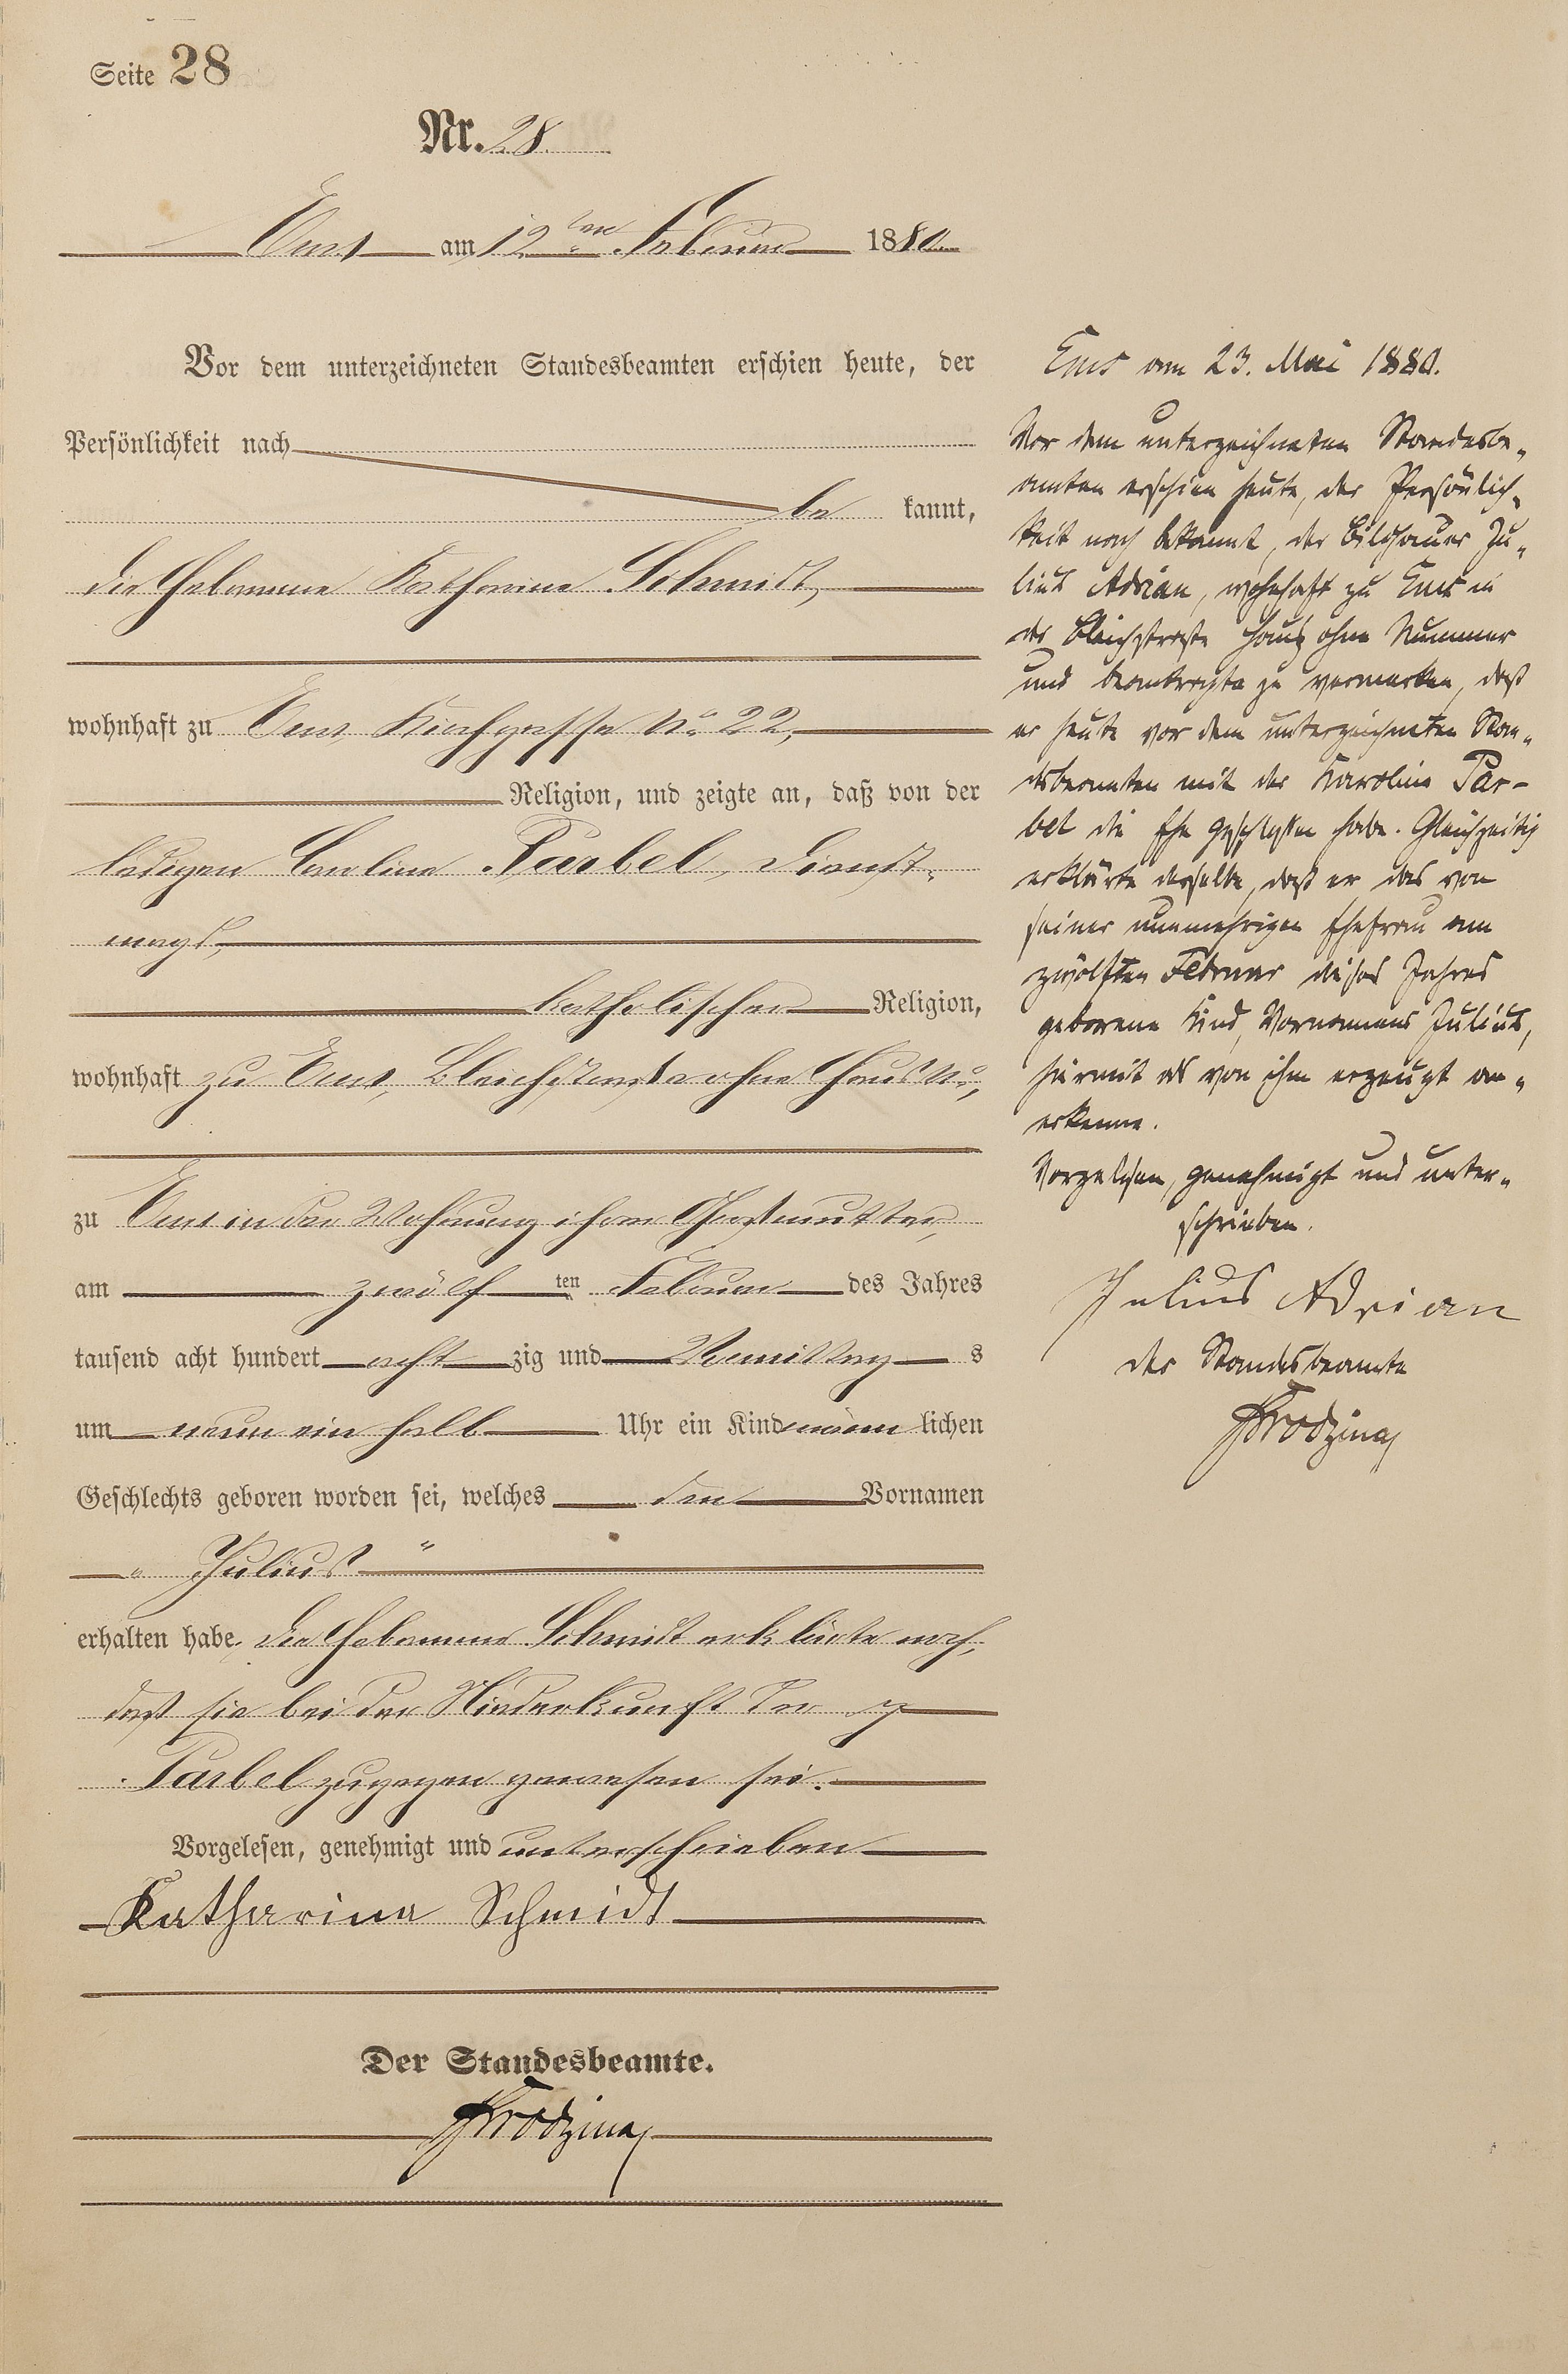 Seite 28
Nr. 28.
Ems am 12ten Februar 1880.
Vor dem unterzeichneten Standesbeamten erschien heute, der
Persönlichkeit nach
be kannt,
die Hebamme Katharina Schmidt,
wohnhaft zu Ems, Kirchgasse No. 22,
Religion, und zeigte an, daß von der
ledigen Carolina Parbel, Dienst-
magd,
katholischer Religion,
wohnhaft zu Ems, Bleichstraße ohne Haus No.,
zu Ems in der Wohnung ihrer Großmutter,
am zwölf ten Februar des Jahres
tausend acht hundert acht zig und Vormittag s
um neun ein halb Uhr ein Kind männ lichen
Geschlechts geboren worden sei, welches den Vornamen
" Julius "
erhalten habe. Die Hebamme Schmidt erklärte noch,
daß sie bei der Niederkunft der p
Parbel zugegen gewesen sei.
Vorgelesen, genehmigt und unterschrieben
Katharina Schmidt
Der Standesbeamte.
Ems am 23. Mai 1880.
Vor dem unterzeichneten Standesbe-
amten erschien heute, der Persönlich-
keit nach bekannt, der Bildhauer Ju-
lius Adrian, wohnhaft zu Ems in
der Bleichstraße Haus ohne Nummer
und beantragte zu vermerken, daß
er heute vor dem unterzeichneten Stan-
desbeamten mit der Karolina Par-
bel die Ehe geschlossen habe. Gleichzeitig
erklärte derselbe, daß er das von
seiner nunmehrigen Ehefrau am
zwölften Februar dieses Jahres
geborene Kind, Vornamens Julius,
hiermit als von ihm erzeugt an-
erkenne.
Vorgelesen, genehmigt und unter-
schrieben.
Julius Adrian
der Standesbeamte